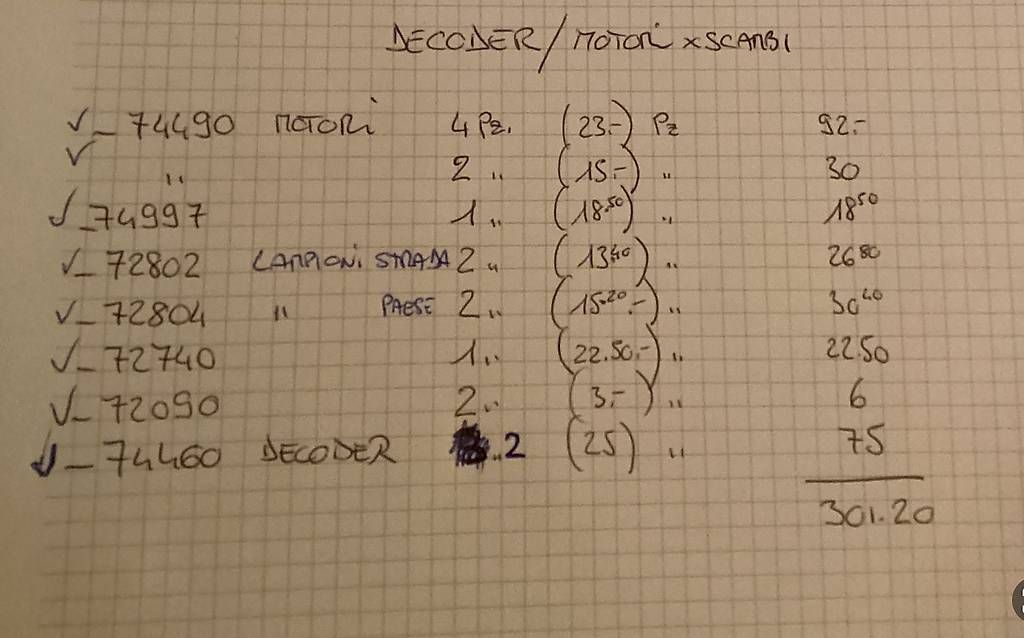 DECODER/MOTORI x SCAMBI
✓ - 74490 MOTORI 4 Pz. (23.-) Pz 92.-
✓ " 2 " (15.-) " 30
✓ - 74997 1 " (18.50) " 18.50
✓ - 72802 LAMPIONI STRADA 2 " (13.40) " 26.80
✓ - 72804 " PAESE 2 " (15.20.-) " 30.40
✓ - 72740 1 " (22.50.-) " 22.50
✓ - 72090 2 " (3.-) " 6
✓ - 74460 DECODER " 2 (25) " 75
301.20